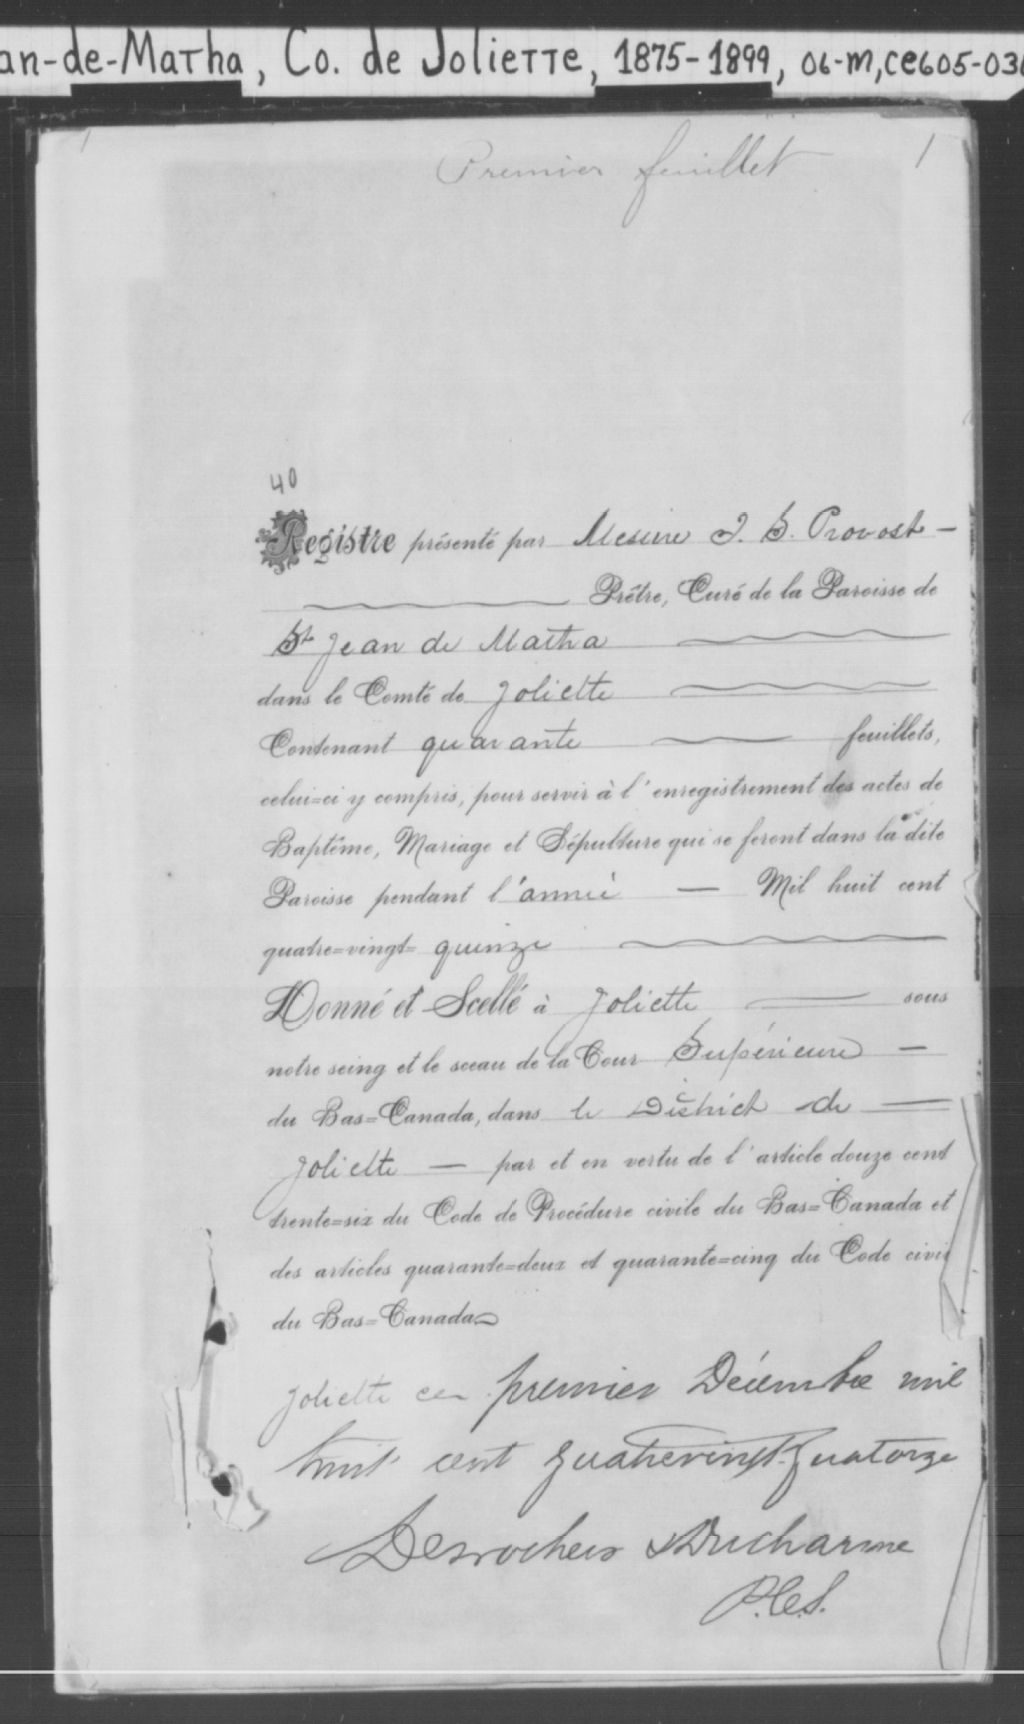 an-de-Matha, Co. de Joliette, 1875-1899, 06-M, CE605-03
1
Premier feuillet
1
40
Registre présenté par Messire J. B. Provost —
Prêtre, Curé de la Paroisse de
St Jean de Matha
dans le Comté de Joliette
Contenant quarante — feuillets,
celui=ci y compris, pour servir à l'enregistrement des actes de
Baptême, Mariage et Sépulture qui se feront dans la dite
Paroisse pendant l'année — Mil huit cent
quatre=vingt= quinze
Donné et Scellé à Joliette — sous
notre seing et le sceau de la Cour Supérieure —
du Bas=Canada, dans le District de —
Joliette — par et en vertu de l'article douze cent
trente=six du Code de Procédure civile du Bas=Canada et
des articles quarante=deux et quarante=cinq du Code civil
du Bas=Canada
Joliette ce premier Décembre mil
huit cent quatrevingt-quatorze
Desrochers & Ducharme
P.C.S.